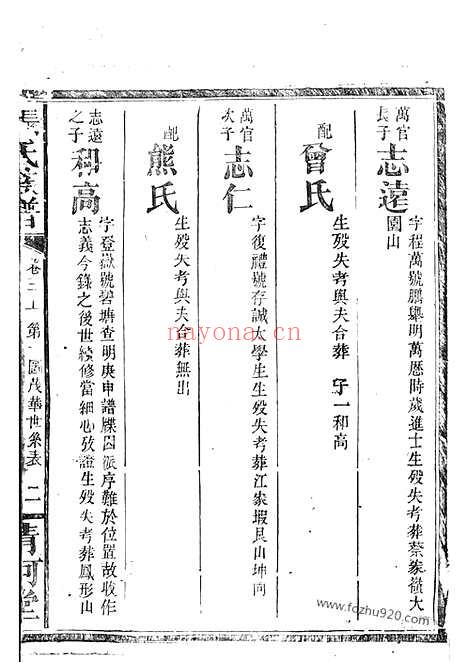 萬官
長子
志遠
字程萬號鵬舉明萬歷時歲進士生歿失考葬蔡家嶺大
園山
配
曾氏
生歿失考與夫合葬 子一和高
萬官
次子
志仁
字復禮號存誠太學生生歿失考葬江家塅艮山坤向
配
熊氏
生歿失考與夫合葬無出
志遠
之子
和高
字登嶽號碧塘查明庚申譜牒因派序難於位置故收作
志義今錄之後世續修當細心攷證生歿失考葬鳳形山
氏族譜
卷二上 第
國茂華世系表
二
清河堂
nayona.cn
www.fozhu920.com